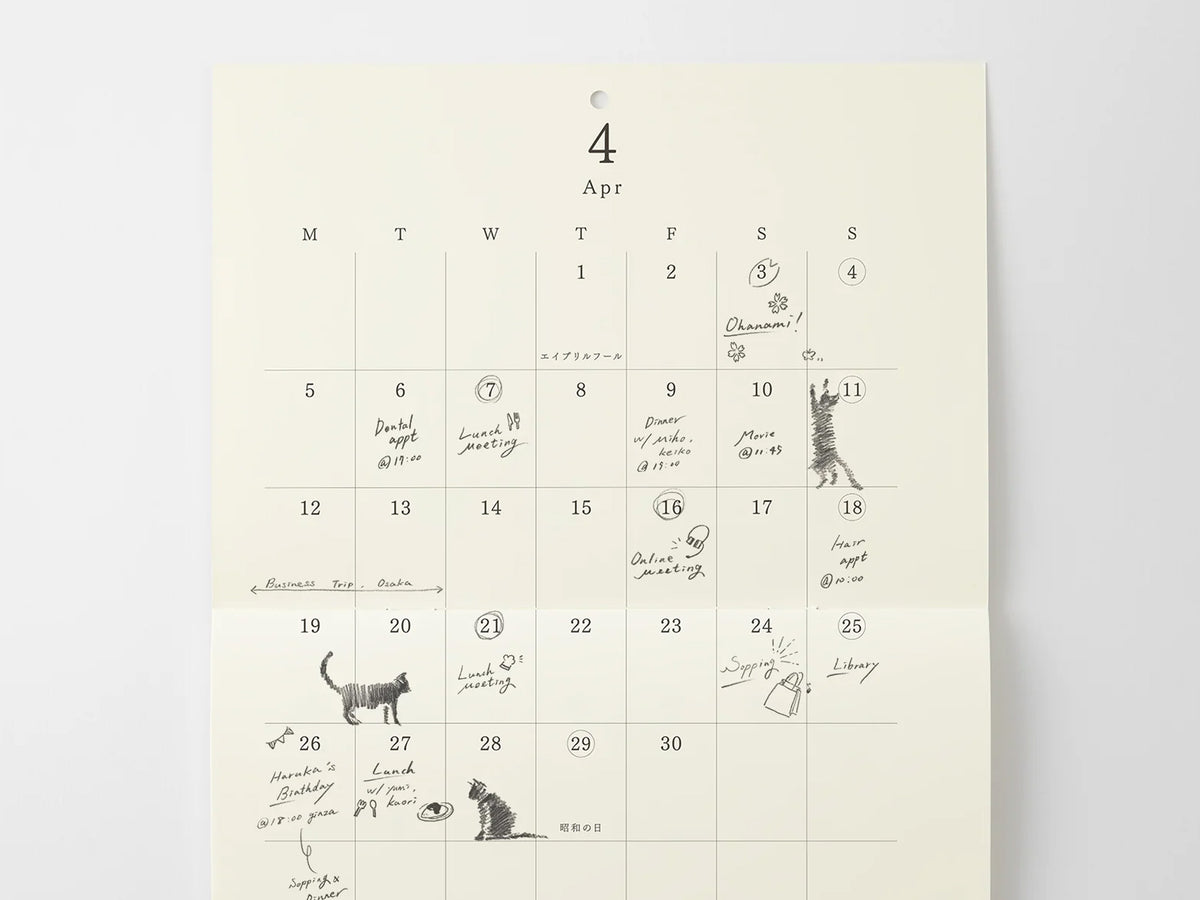 4
Apr
M T W T F S S
1 2 3 4
Ohanami!
エイプリルフール
5 6 7 8 9 10 11
Dental
appt
@17:00
Lunch
meeting
Dinner
w/ Miho,
keiko
@19:00
Movie
@11:45
12 13 14 15 16 17 18
Business Trip. Osaka
Online
meeting
Hair
appt
@10:00
19 20 21 22 23 24 25
Lunch
meeting
Sopping
Library
26 27 28 29 30
Haruka's
Birthday
@18:00 ginza
Sopping &
Dinner
Lunch
w/ yumi,
kaori
昭和の日